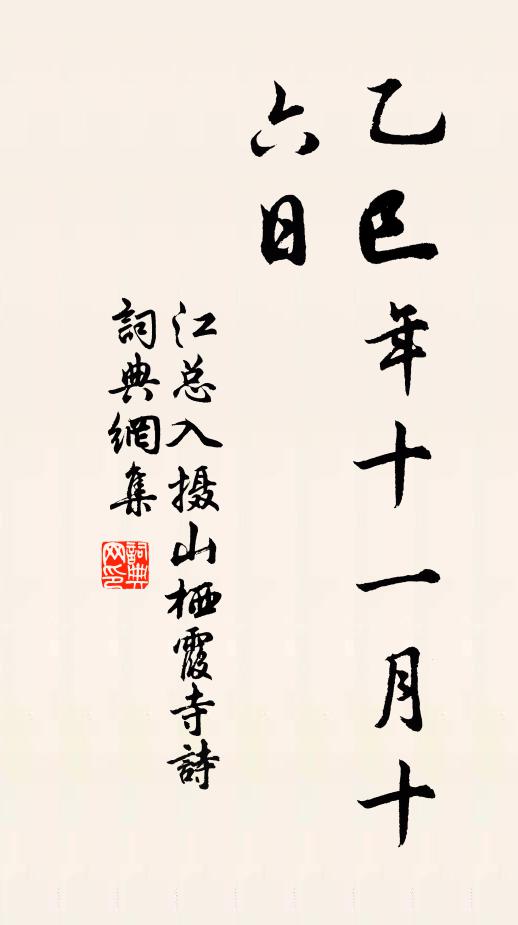 乙巳年十一月十
六日
江总入摄山栖霞寺詩
詞典網集
詞典网印